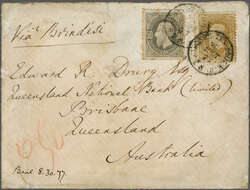 Via Brindisi
Edward R. Drury Esq
Queensland National Bank (Limited)
Brisbane
Queensland
Australia
Brux 8.30.77